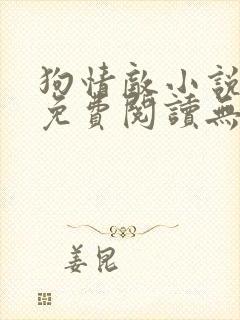 狗情敵小說
免費閱讀無
姜昆